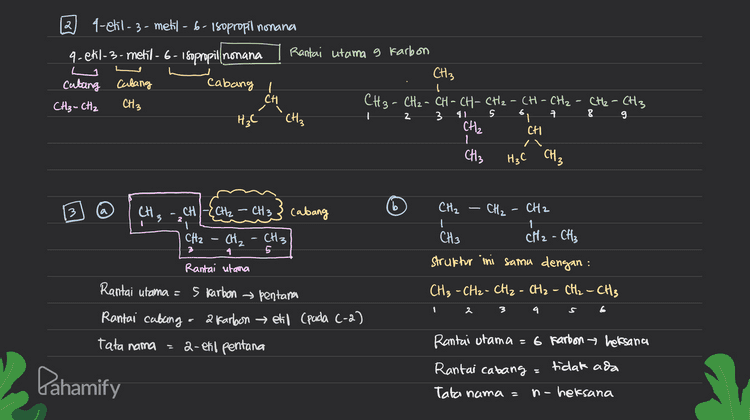 2 4-etil-3-metil-6-isopropil nonana
4-etil-3-metil-6-isopropil nonana Rantai utama 9 karbon
cabang cabang cabang
CH3-CH2 CH3 CH
H3C CH3
CH3
CH3 - CH2 - CH - CH - CH2 - CH - CH2 - CH2 - CH3
1 2 3 4 5 6 7 8 9
CH2 CH
CH3 H3C CH3
3 a CH3 - CH - CH2 - CH3 cabang
1 2
CH2 - CH2 - CH3
3 4 5
Rantai utama
Rantai utama = 5 karbon → pentana
Rantai cabang = 2 karbon → etil (pada C-2)
Tata nama = 2-etil pentana
b CH2 - CH2 - CH2
CH3 CH2 - CH3
struktur ini sama dengan :
CH3 - CH2 - CH2 - CH2 - CH2 - CH3
1 2 3 4 5 6
Rantai utama = 6 karbon → heksana
Rantai cabang = tidak ada
Tata nama = n-heksana
Pahamify